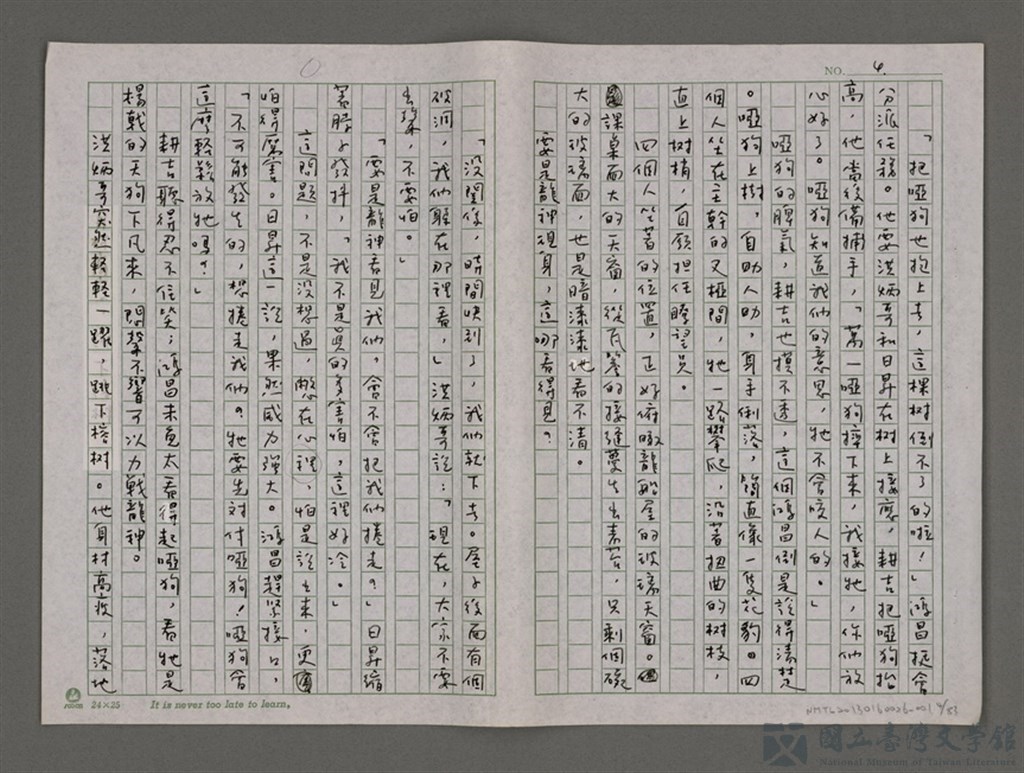 NO. 4.
「把啞狗也抱上去，這棵树倒不了的啦！」鴻昌振舍
分派任務。他要洪炳哥和日昇在树上接應，耕吉把啞狗抬
高，他當後備捕手，「萬一啞狗摔下來，我接牠，你們放
心好了。啞狗知道我們的意思，牠不會咬人的。」
啞狗的脾氣，耕吉也摸不透，這個鴻昌倒是說得清楚
。啞狗上樹，自助人助，身手倒落，簡直像一隻花豹。四
個人坐在主幹的叉椏間，牠一路攀爬，沿著扭曲的树枝，
直上树梢，自願担任瞭望員。
四個人坐著的位置，正好俯瞰龍船屋的玻璃天窗。
課桌面大的天窗，從瓦簷的接縫蔓生出青苔，只剩個碗
大的玻璃面，也是暗漆漆地看不清。
要是龍神現身，這哪看得見？
「沒関係，時間快到了，我們就下去。屋子後面有個
破洞，我們躲在那裡看，」洪炳哥說：「現在，大家不要
出聲，不要怕。」
「要是龍神看見我們，會不會把我們捲走？」日昇縮
著脖子發抖，「我不是真的多害怕，這裡好冷。」
這問題，不是沒想過，憋在心裡，怕是說出來，更
怕得厲害。日昇這一說，果然威力強大。鴻昌趕緊接口，
「不可能發生的，想捲走我們？牠要先对付啞狗！啞狗會
這麼輕鬆放牠嗎？」
耕吉聽得忍不住笑；鴻昌未免太看得起啞狗，看牠是
楊戩的天狗下凡來，悶聲不響可以力戰龍神。
洪炳哥突然輕輕一躍，跳下榕树。他身材高瘦，落地
24×25 It is never too late to learn.
NMTL20130160026-001 4/53
國立臺灣文學館
National Museum of Taiwan Literature